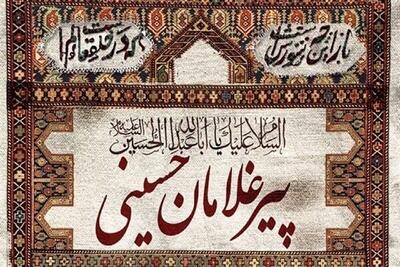 باز این چه شورش است
که در خلق عالم است
السلام علیک یا اباعبدالله الحسین علیه‌السلام
پیرغلامان حسینی